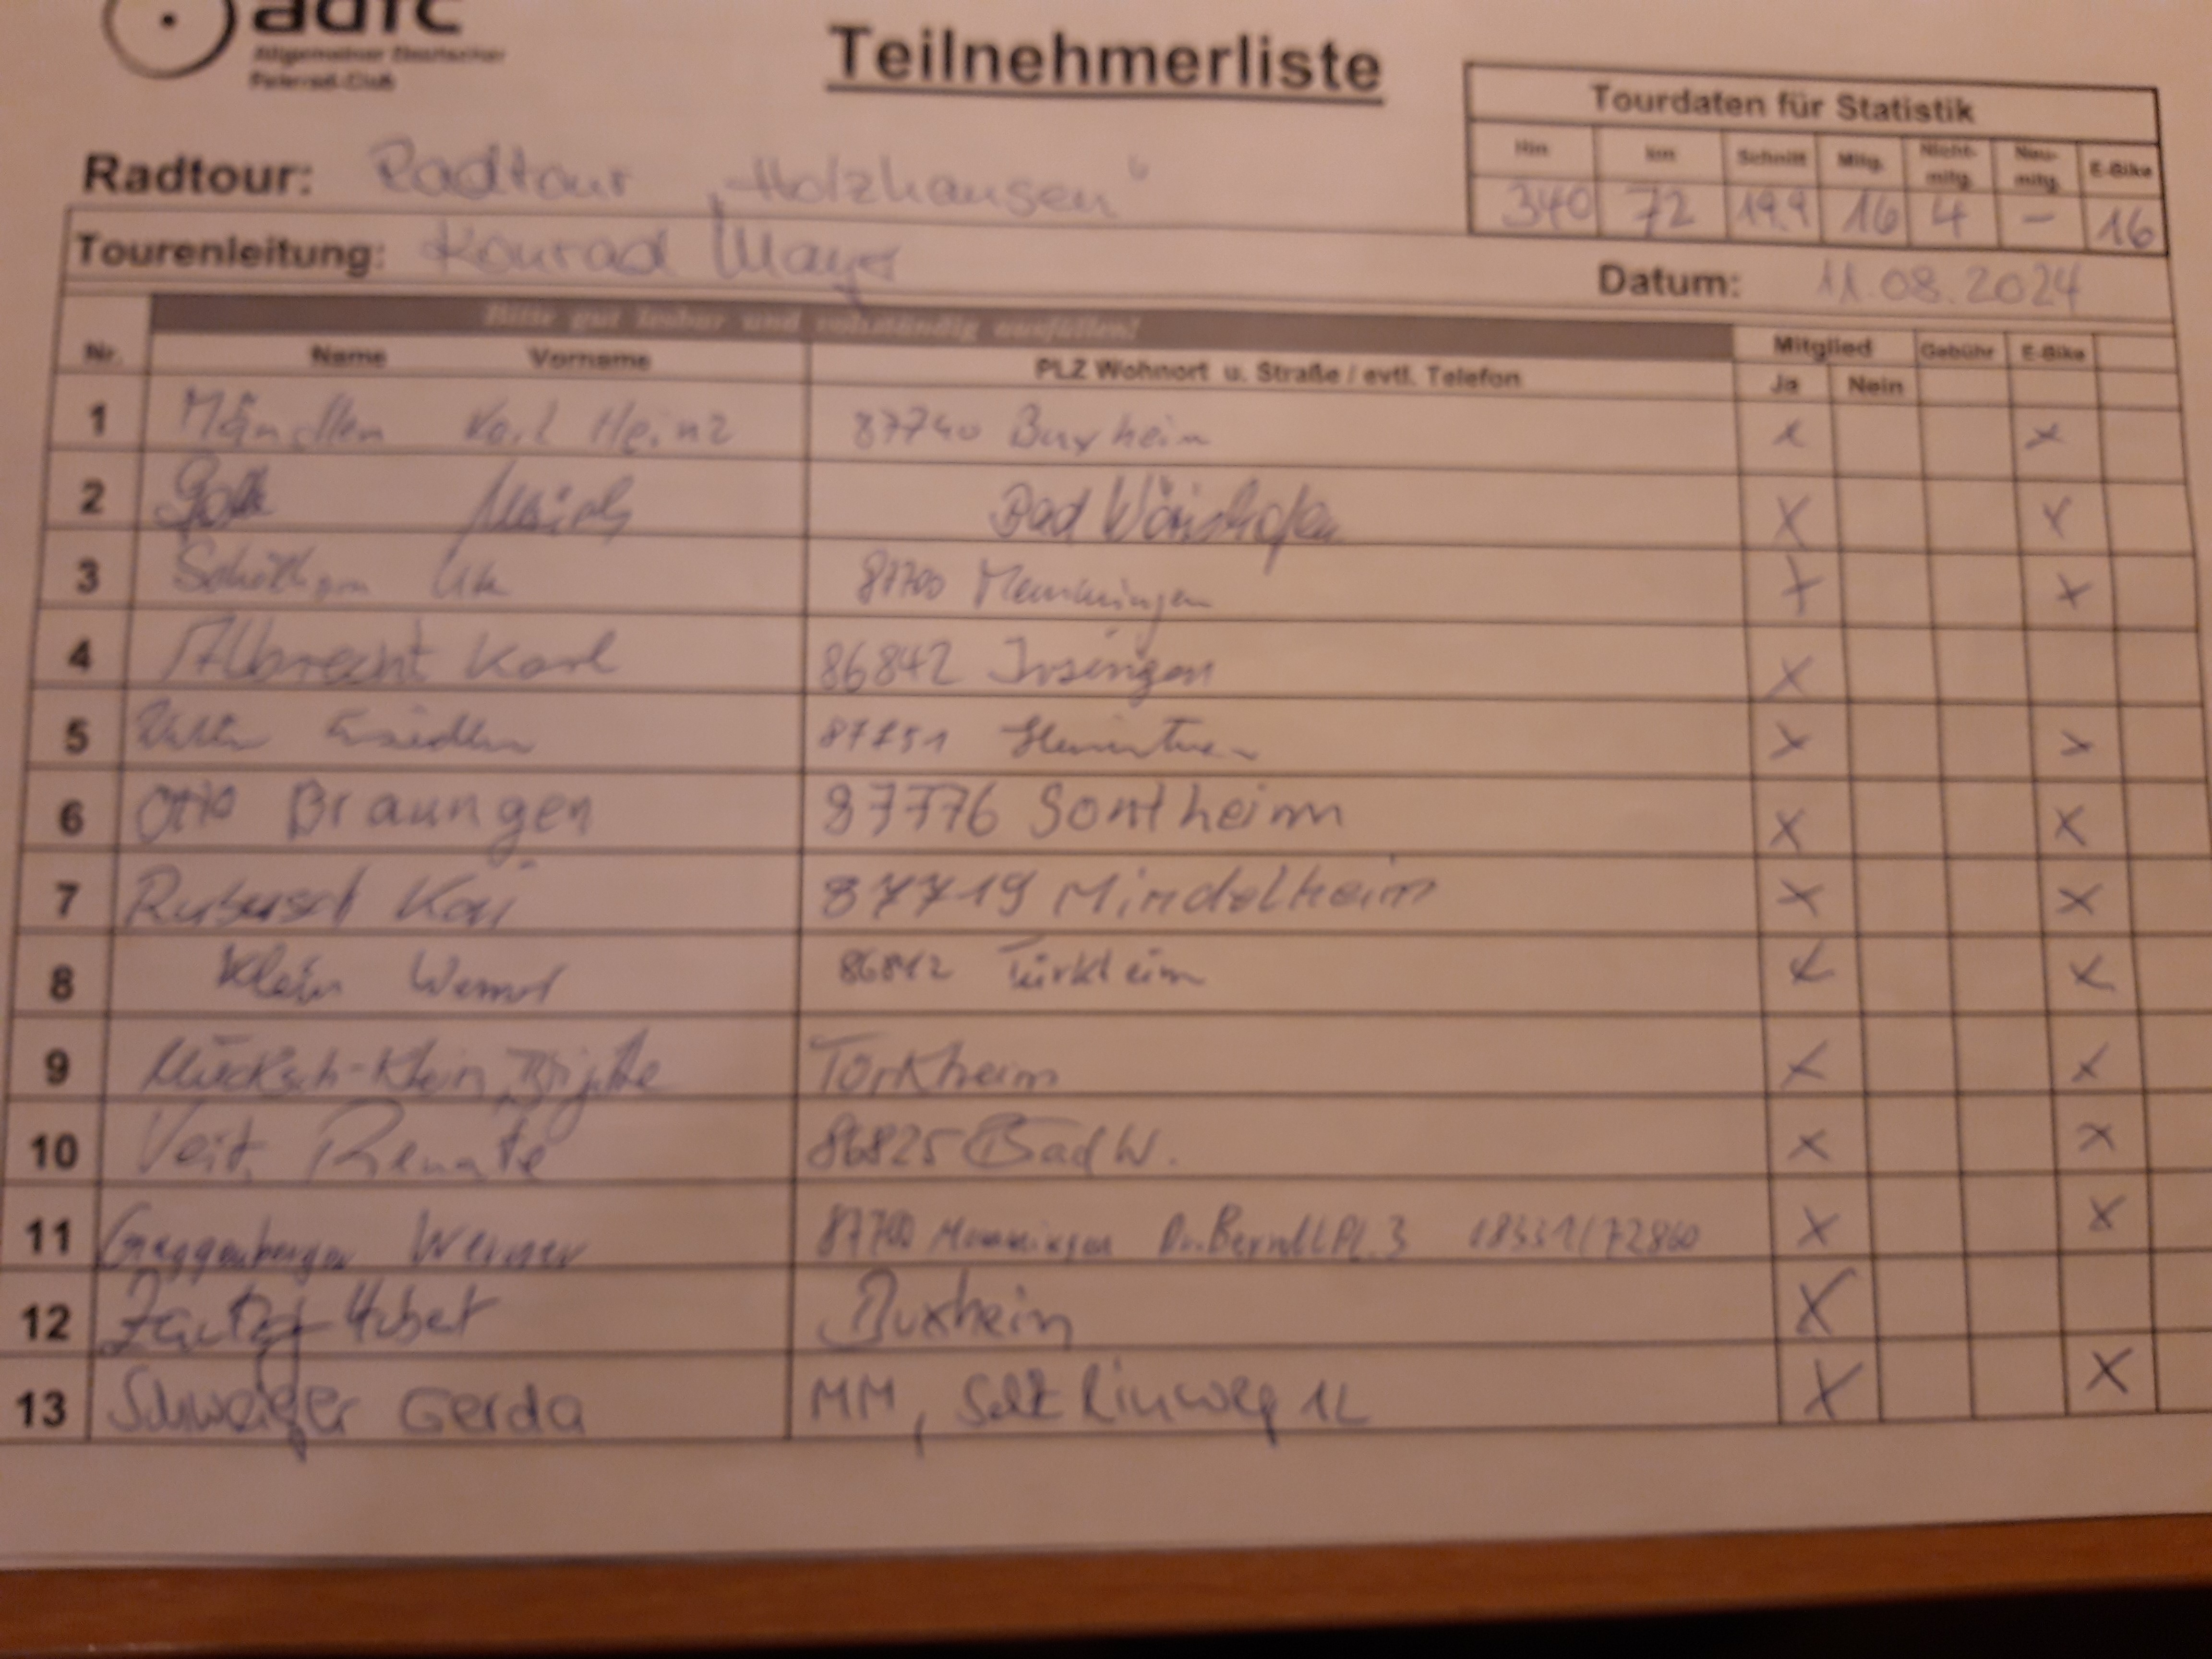 adfc
Allgemeiner Deutscher
Fahrrad-Club
Teilnehmerliste
Tourdaten für Statistik
Hm km Schnitt Mitg. Nicht-mitg. Neu-mitg. E-Bike
340 72 19,9 16 4 - 16
Radtour: Radtour "Holzhausen"
Tourenleitung: Konrad Mayr
Datum: 11.08.2024
Bitte gut lesbar und vollständig ausfüllen!
Nr. Name Vorname PLZ Wohnort u. Straße / evtl. Telefon Mitglied Gebühr E-Bike
Ja Nein
1 Karl Heinz 87740 Buxheim x x
2 Bad Wörishofen x x
3 87700 Memmingen x x
4 Albrecht Karl 86842 Irsingen x
5 x x
6 Otto Braungen 87776 Sontheim x x
7 Kai 87719 Mindelheim x x
8 Klein Werner 86842 Türkheim x x
9 Mücksch-Klein, Brigitte Türkheim x x
10 Veit Renate 86825 Bad W. x x
11 Guggenberger Werner 87700 Memmingen Dr. Berndl Pl. 3 x x
12 Buxheim x
13 Schweiger Gerda MM, x x